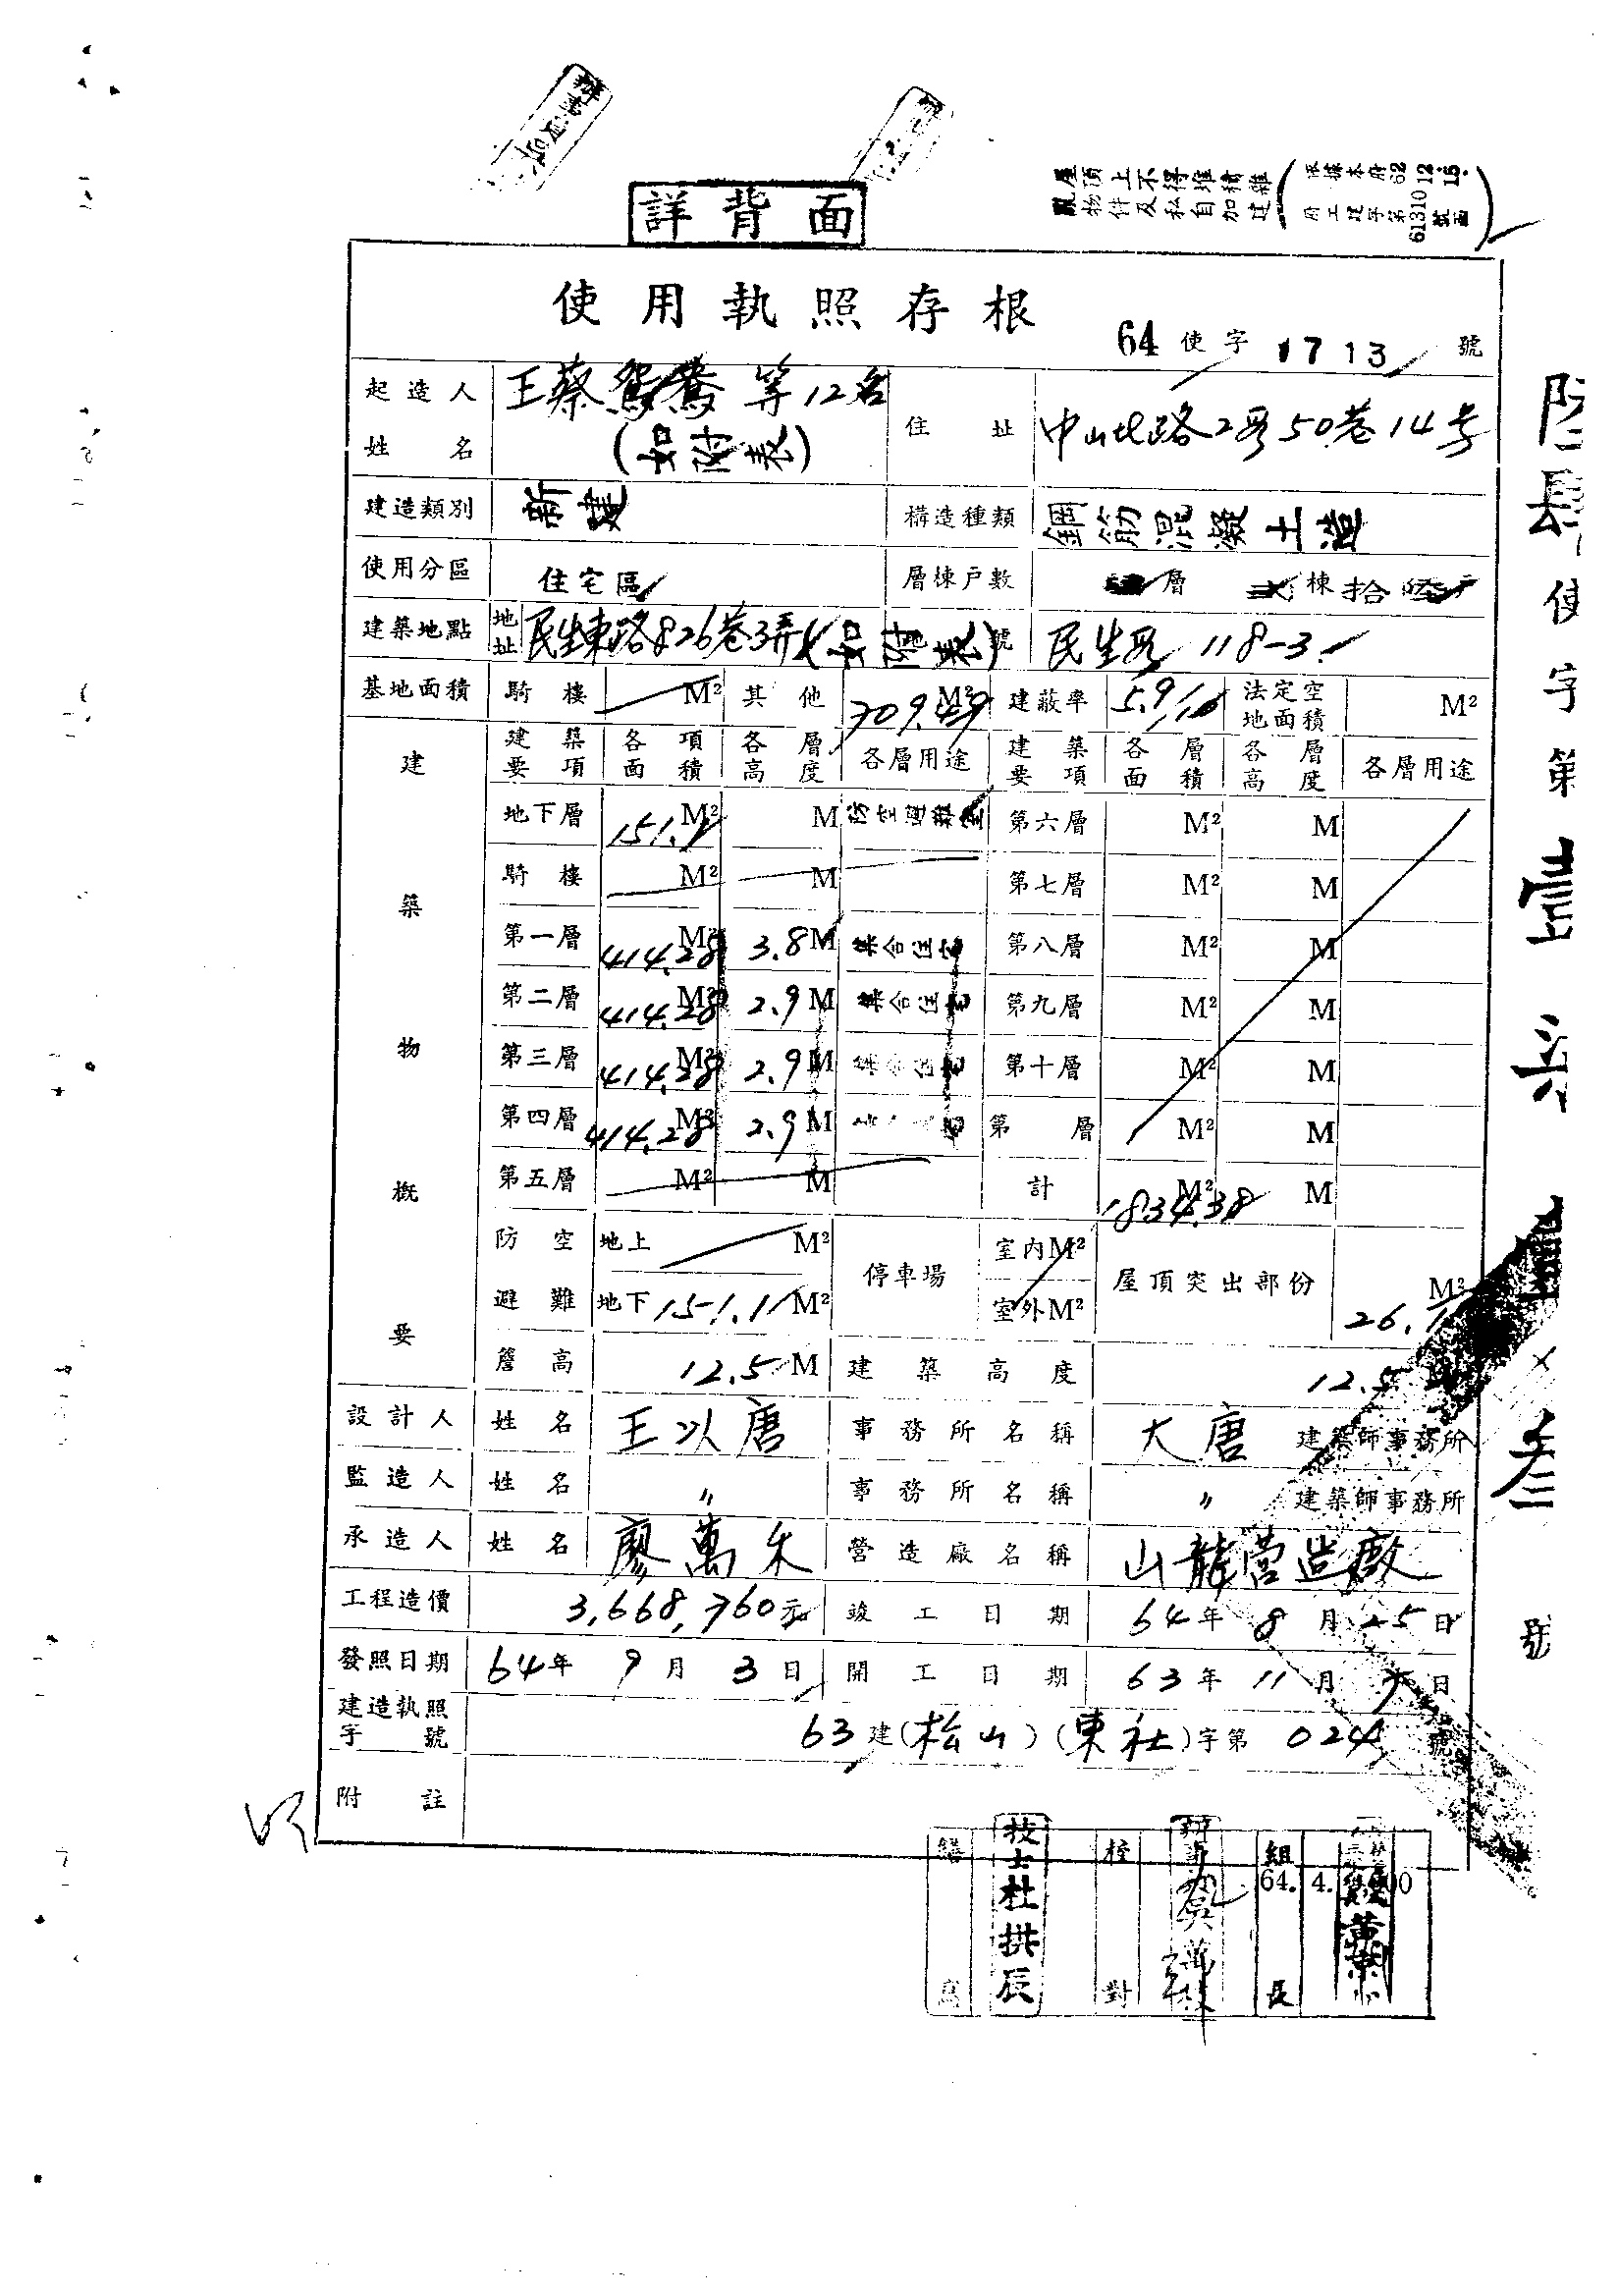 屋頂上不得堆積雜
物件及私自加建
依據本府62.12.15.
府工建字第61310號函
詳背面
使用執照存根
64使字1713號
起造人姓名 王蔡鴛鴦等12名(如附表) 住址 中山北路2段50巷14号
建造類別 新建 構造種類 鋼筋混凝土造
使用分區 住宅區 層棟戶數 層 棟拾
建築地點 地址 民生東路826巷3弄(如附表)號 民生段118-3
基地面積 騎樓 M² 其他 709.49 M² 建蔽率 5.9/10 法定空地面積 M²
建築物概要
建築要項 各項面積 各層高度 各層用途 建築要項 各層面積 各層高度 各層用途
地下層 151.1 M² M 防空避難室 第六層 M² M
騎樓 M² M 第七層 M² M
第一層 414.28 M² 3.8 M 集合住宅 第八層 M² M
第二層 414.28 M² 2.9 M 集合住宅 第九層 M² M
第三層 414.28 M² 2.9 M 集合住宅 第十層 M² M
第四層 414.28 M² 2.9 M 第 層 M² M
第五層 M² M 計 1834.38 M² M
防空避難 地上 M² 停車場 室內M² 屋頂突出部份 26.1 M²
地下 151.1 M² 室外M²
簷高 12.5 M 建築高度 12.5
設計人 姓名 王以唐 事務所名稱 大唐 建築師事務所
監造人 姓名 〃 事務所名稱 〃 建築師事務所
承造人 姓名 廖萬禾 營造廠名稱 山龍营造廠
工程造價 3,668,760元 竣工日期 64年8月25日
發照日期 64年9月3日 開工日期 63年11月 日
建造執照字號 63建(松山)(東社)字第024號
附註
繕寫 技士杜拱辰 校對 組長
64. 4.
使字第
號